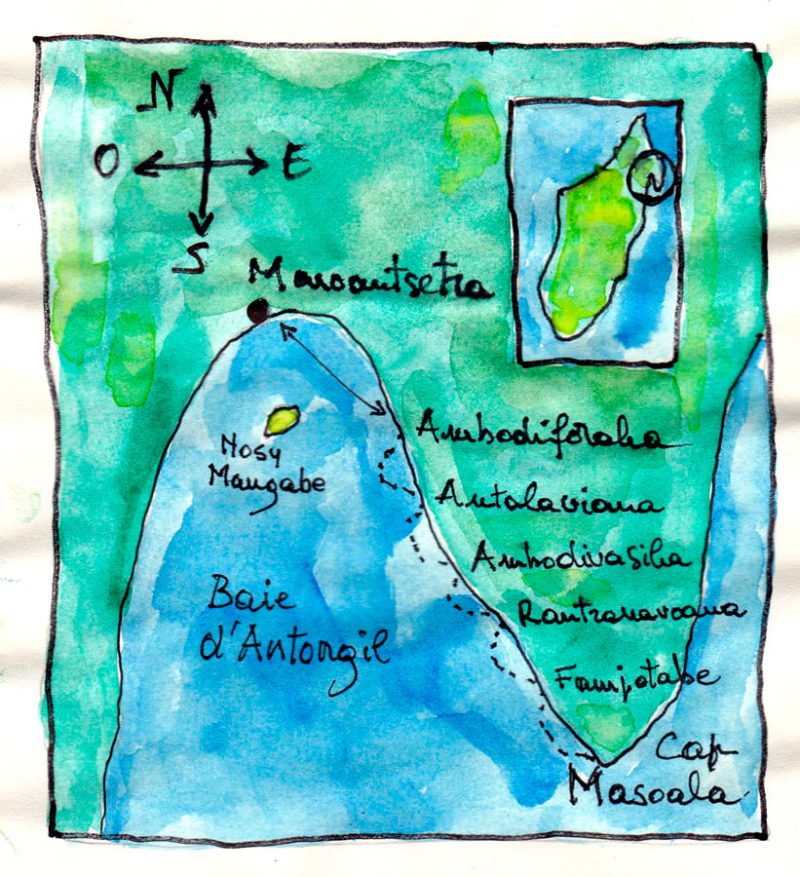 N
O E
S
Maroantsetra
Nosy
Mangabe
Ambodiforaha
Antalaviana
Ambodivasiha
Rantranavoana
Fampotabe
Baie
d'Antongil
Cap
Masoala